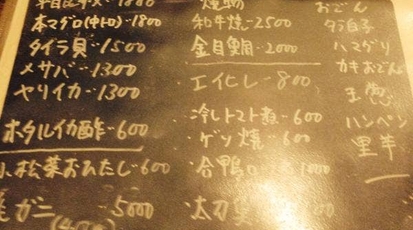 本マグロ(中トロ)-1800
タイラ貝-1500
メサバ-1300
ヤリイカ-1300
ホタルイカ酢-600
小松菜おひたし-600
ガニ-5000
焼物
和牛焼-2500
金目鯛-2000
エイヒレ-800
冷しトマト-600
ゲソ焼-600
合鴨ロ
太刀魚
おでん
タラ白子
ハマグリ
カキおでん
玉
ハンペン
里芋